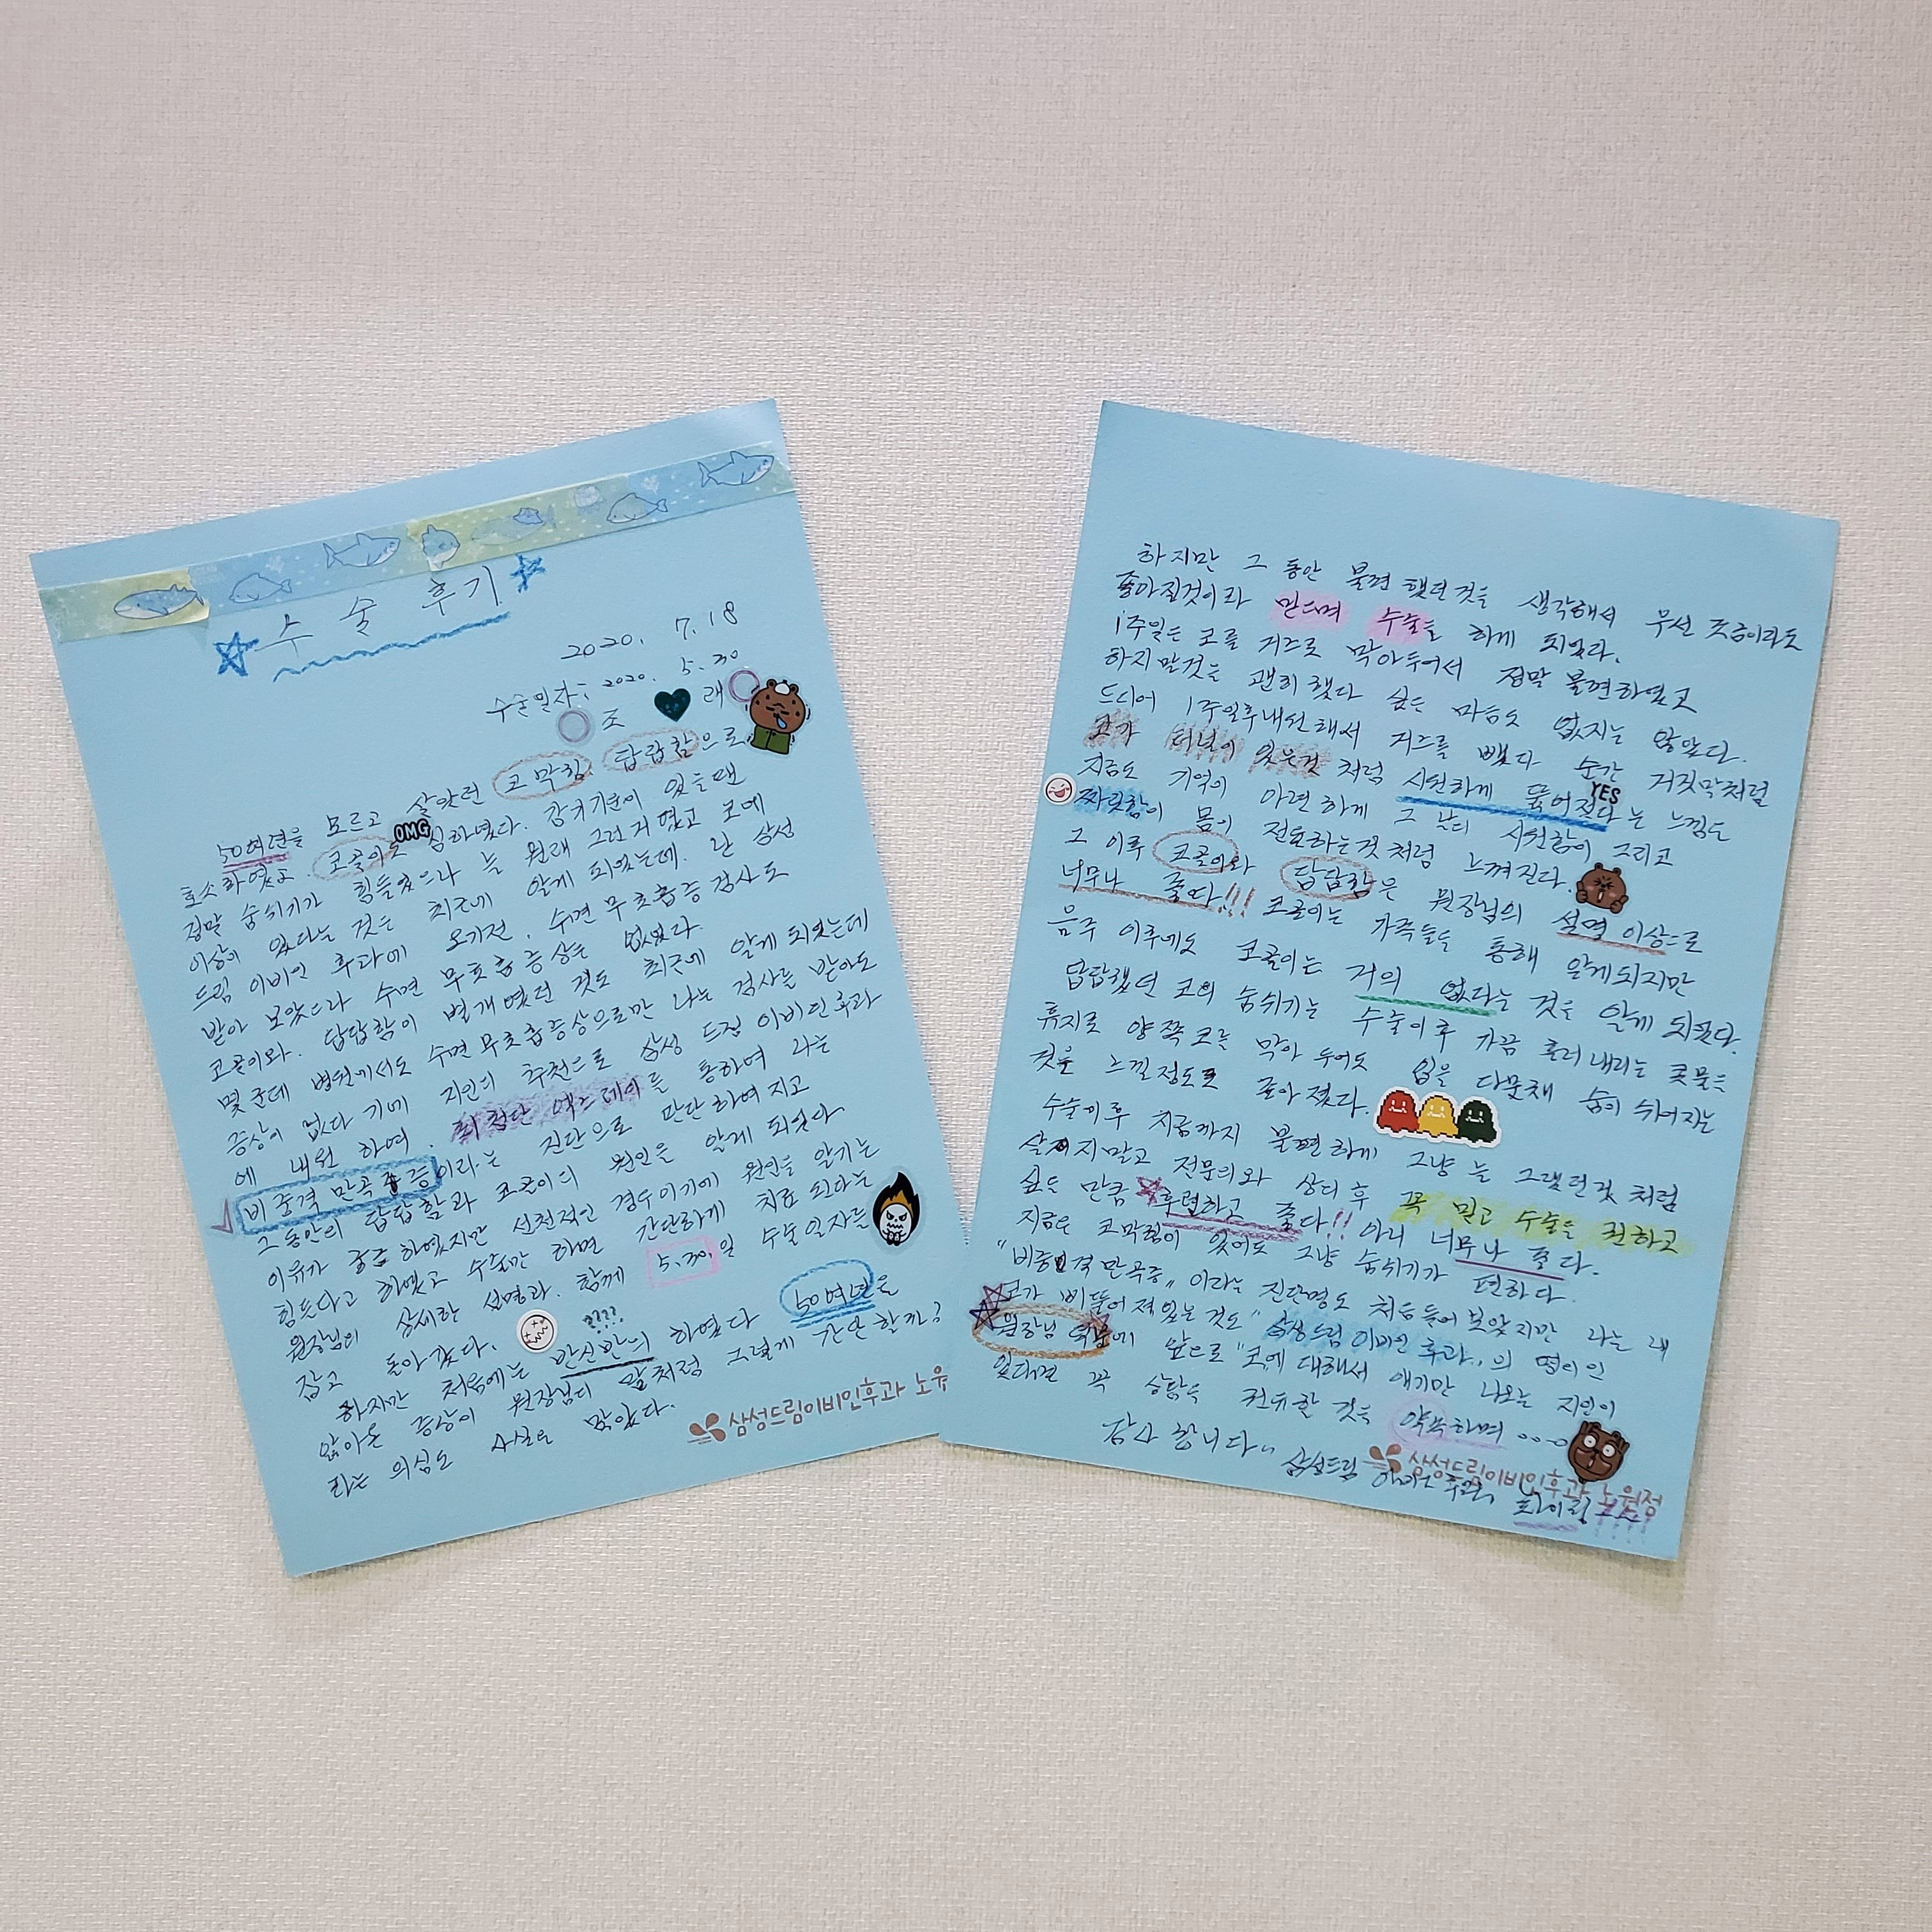 수 술 후기
2020. 7. 18
수술일자: 2020. 5. 30
조 래
50여년을 모르고 살았던 코막힘. 답답함으로
호소하였고. 코골이도 심하였다. 감기기운이 있을땐
OMG
정말 숨쉬기가 힘들었으나 늘 원래 그런거 였고 코에
이상이 있다는 것은 최근에 알게 되었는데. 난 삼성
드림 이비인 후과에 오기전. 수면 무호흡증 검사도
받아 보았으나 수면 무호흡 증상은 없었다.
코골이와. 답답함이 별개였던 것도 최근에 알게 되었는데
몇군데 병원에서도 수면 무호흡증상으로만 나는 검사를 받아도
증상이 없다 기에 지인의 추천으로 삼성 드림 이비인후과
에 내원 하여. 최첨단 엑스레이를 통하여 나는
비중격 만곡증이라는 진단으로 판단하여 지고
그동안의 답답함과 코골이의 원인을 알게 되었다
이유가 궁금 하였지만 선천적인 경우이기에 원인을 알기는
힘든다고 하였고 수술만 하면 간단하게 치료 된다는
원장님의 상세한 설명과. 함께 5.30.일 수술일자를
잡고 돌아갔다.
????
하지만 처음에는 반신반의 하였다 50여년을
앓아온 증상이 원장님의 말처럼 그렇게 간단할까?
라는 의심도 사실은 많았다.
삼성드림이비인후과 노유
하지만 그 동안 불편했던것을 생각해서 우선 조금이라도
좋아질것이라 믿으며 수술을 하게 되었다.
1주일은 코를 거즈로 막아두어서 정말 불편하였고
하지말것을 괜히 했다 싶은 마음도 없지는 않았다.
드디어 1주일후 내원해서 거즈를 뺐다 순간 거짓말처럼
코가 터널이 있는것 처럼 시원하게 뚫어졌다는 느낌은
YES
지금도 기억의 아련하게 그 날의 시원함이 그리고
짜릿함이 몸이 전율하는것 처럼 느껴진다.
그 이후 코골이와 답답함은 원장님의 설명 이상으로
너무나 좋다!!! 코골이는 가족들을 통해 알게되지만
음주 이후에도 코골이는 거의 없다는 것을 알게 되었다.
답답했던 코의 숨쉬기는 수술이후 가끔 흘러내리는 콧물을
휴지로 양쪽 코를 막아 두어도 입을 다문채 숨이 쉬어지는
것을 느낄정도로 좋아 졌다.
수술이후 지금까지 불편하게 그냥 늘 그랬던것 처럼
살지말고 전문의와 상의 후 꼭 믿고 수술을 권하고
싶은 만큼 후련하고 좋다!! 아니 너무나 좋다.
지금은 코막힘이 있어도 그냥 숨쉬기가 편하다.
"비중격만곡증" 이라는 진단명도 처음들어 보았지만 나는 내
코가 삐뚤어져있는것도" 삼성드림이비인후과.. 의 명의인
원장님 덕분에 앞으로 "코에 대해서 얘기만 나오는 지인이
있다면 꼭 상담을 권유할 것을 약속하며 ....
감사 합니다" 삼성드림 이비인후과,
삼성드림이비인후과 노원점